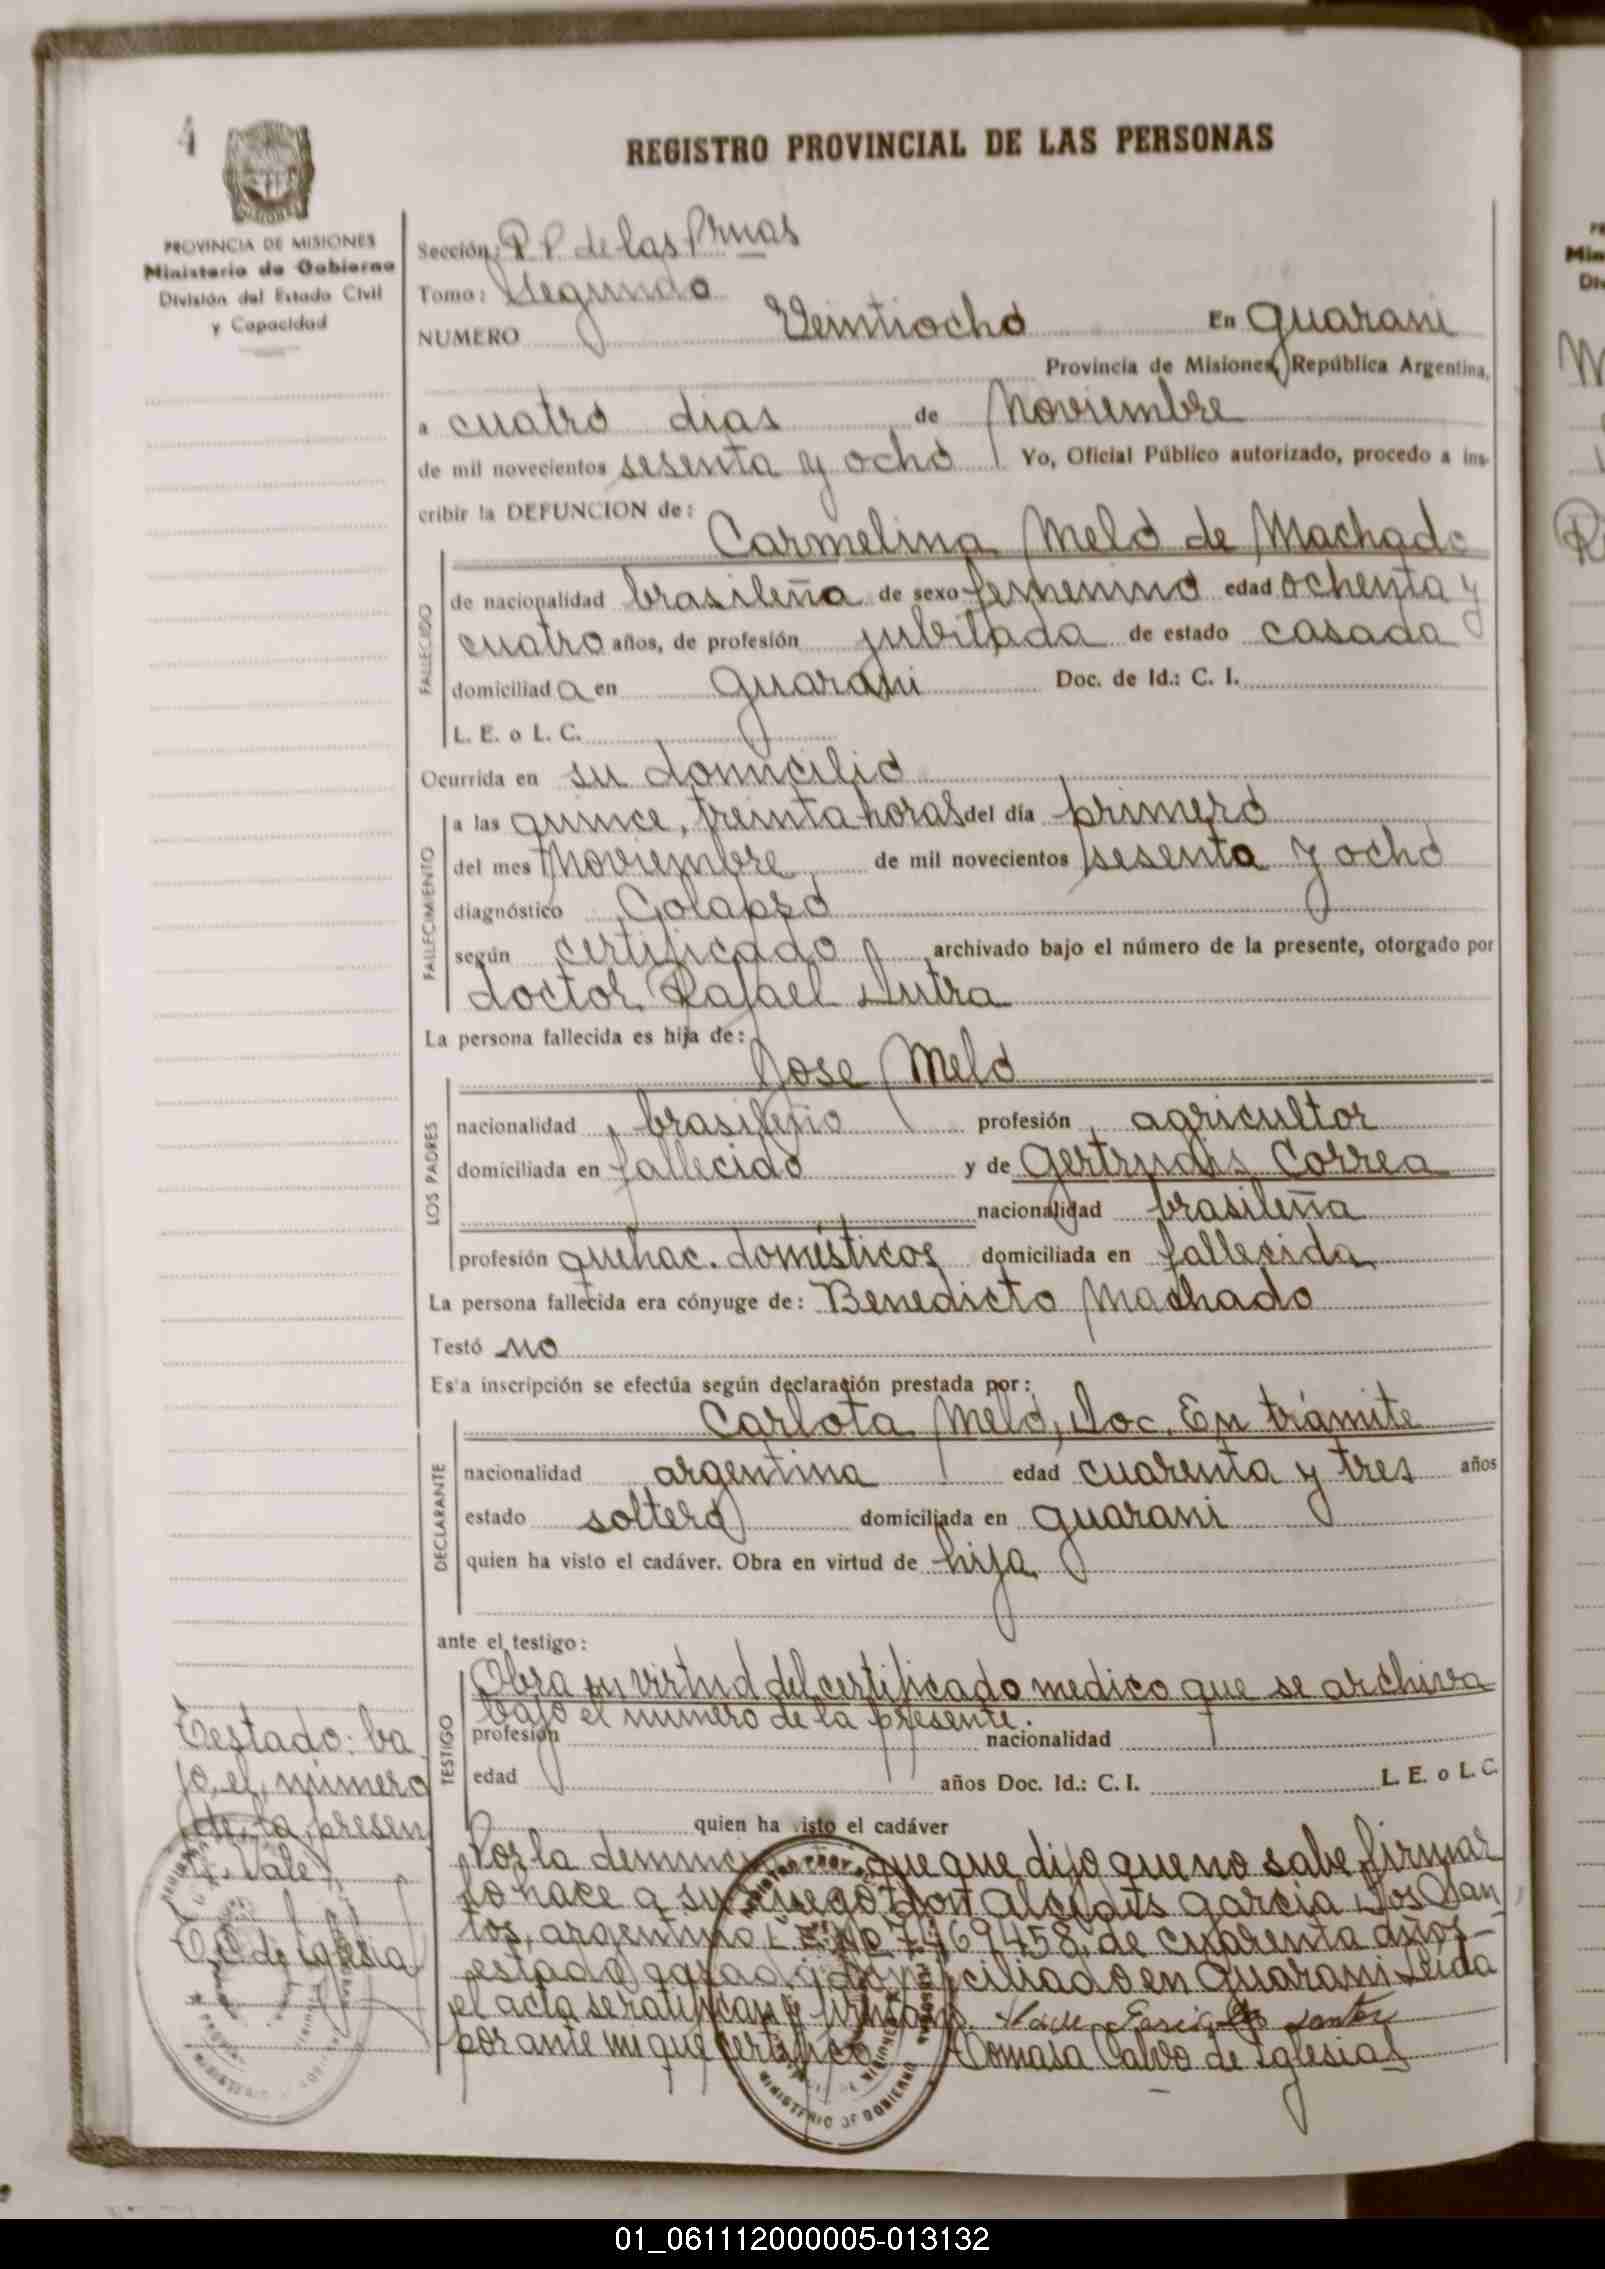 4
REGISTRO PROVINCIAL DE LAS PERSONAS
PROVINCIA DE MISIONES
Ministerio de Gobierno
División del Estado Civil
y Capacidad
Sección: R. P. de las Prnas
Tomo: Segundo
NUMERO Veintiocho En Guarani
Provincia de Misiones, República Argentina,
a cuatro dias de Noviembre
de mil novecientos sesenta y ocho Yo, Oficial Público autorizado, procedo a ins-
cribir la DEFUNCION de:
Carmelina Melo de Machado
FALLECIDO
de nacionalidad brasileña de sexo femenino edad ochenta y
cuatro años, de profesión jubilada de estado casada
domiciliada en Guarani Doc. de Id.: C. I.
L. E. o L. C.
Ocurrida en su domicilio
FALLECIMIENTO
a las quince, treinta horas del día primero
del mes Noviembre de mil novecientos sesenta y ocho
diagnóstico Colapso
según certificado archivado bajo el número de la presente, otorgado por
doctor Rafael Dutra
La persona fallecida es hija de:
Jose Melo
LOS PADRES
nacionalidad brasileño profesión agricultor
domiciliada en fallecido y de Gertrudis Correa
nacionalidad brasileña
profesión quehac. domésticos domiciliada en fallecida
La persona fallecida era cónyuge de: Benedicto Machado
Testó no
Esta inscripción se efectúa según declaración prestada por:
Carlota Melo, Doc. En trámite
DECLARANTE
nacionalidad argentina edad cuarenta y tres años
estado soltera domiciliada en Guarani
quien ha visto el cadáver. Obra en virtud de hija
ante el testigo:
TESTIGO
Obra en virtud del certificado medico que se archiva
bajo el número de la presente.
profesión nacionalidad
edad años Doc. Id.: C. I. L. E. o L. C.
quien ha visto el cadáver
Por la que que dijo que no sabe firmar
lo hace a su ruego don Alcides Garcia Dos San
tos, argentino L. E. No 7469458, de cuarenta años
estado casado, domiciliado en Guarani Leida
el acta se ratifican y firman
por ante mi que certifico Tomasa Calvo de Iglesias
Testado: ba
jo el número
de la presen
t. Vale
T C de Iglesias
MINISTERIO DE GOBIERNO
01_061112000005-013132